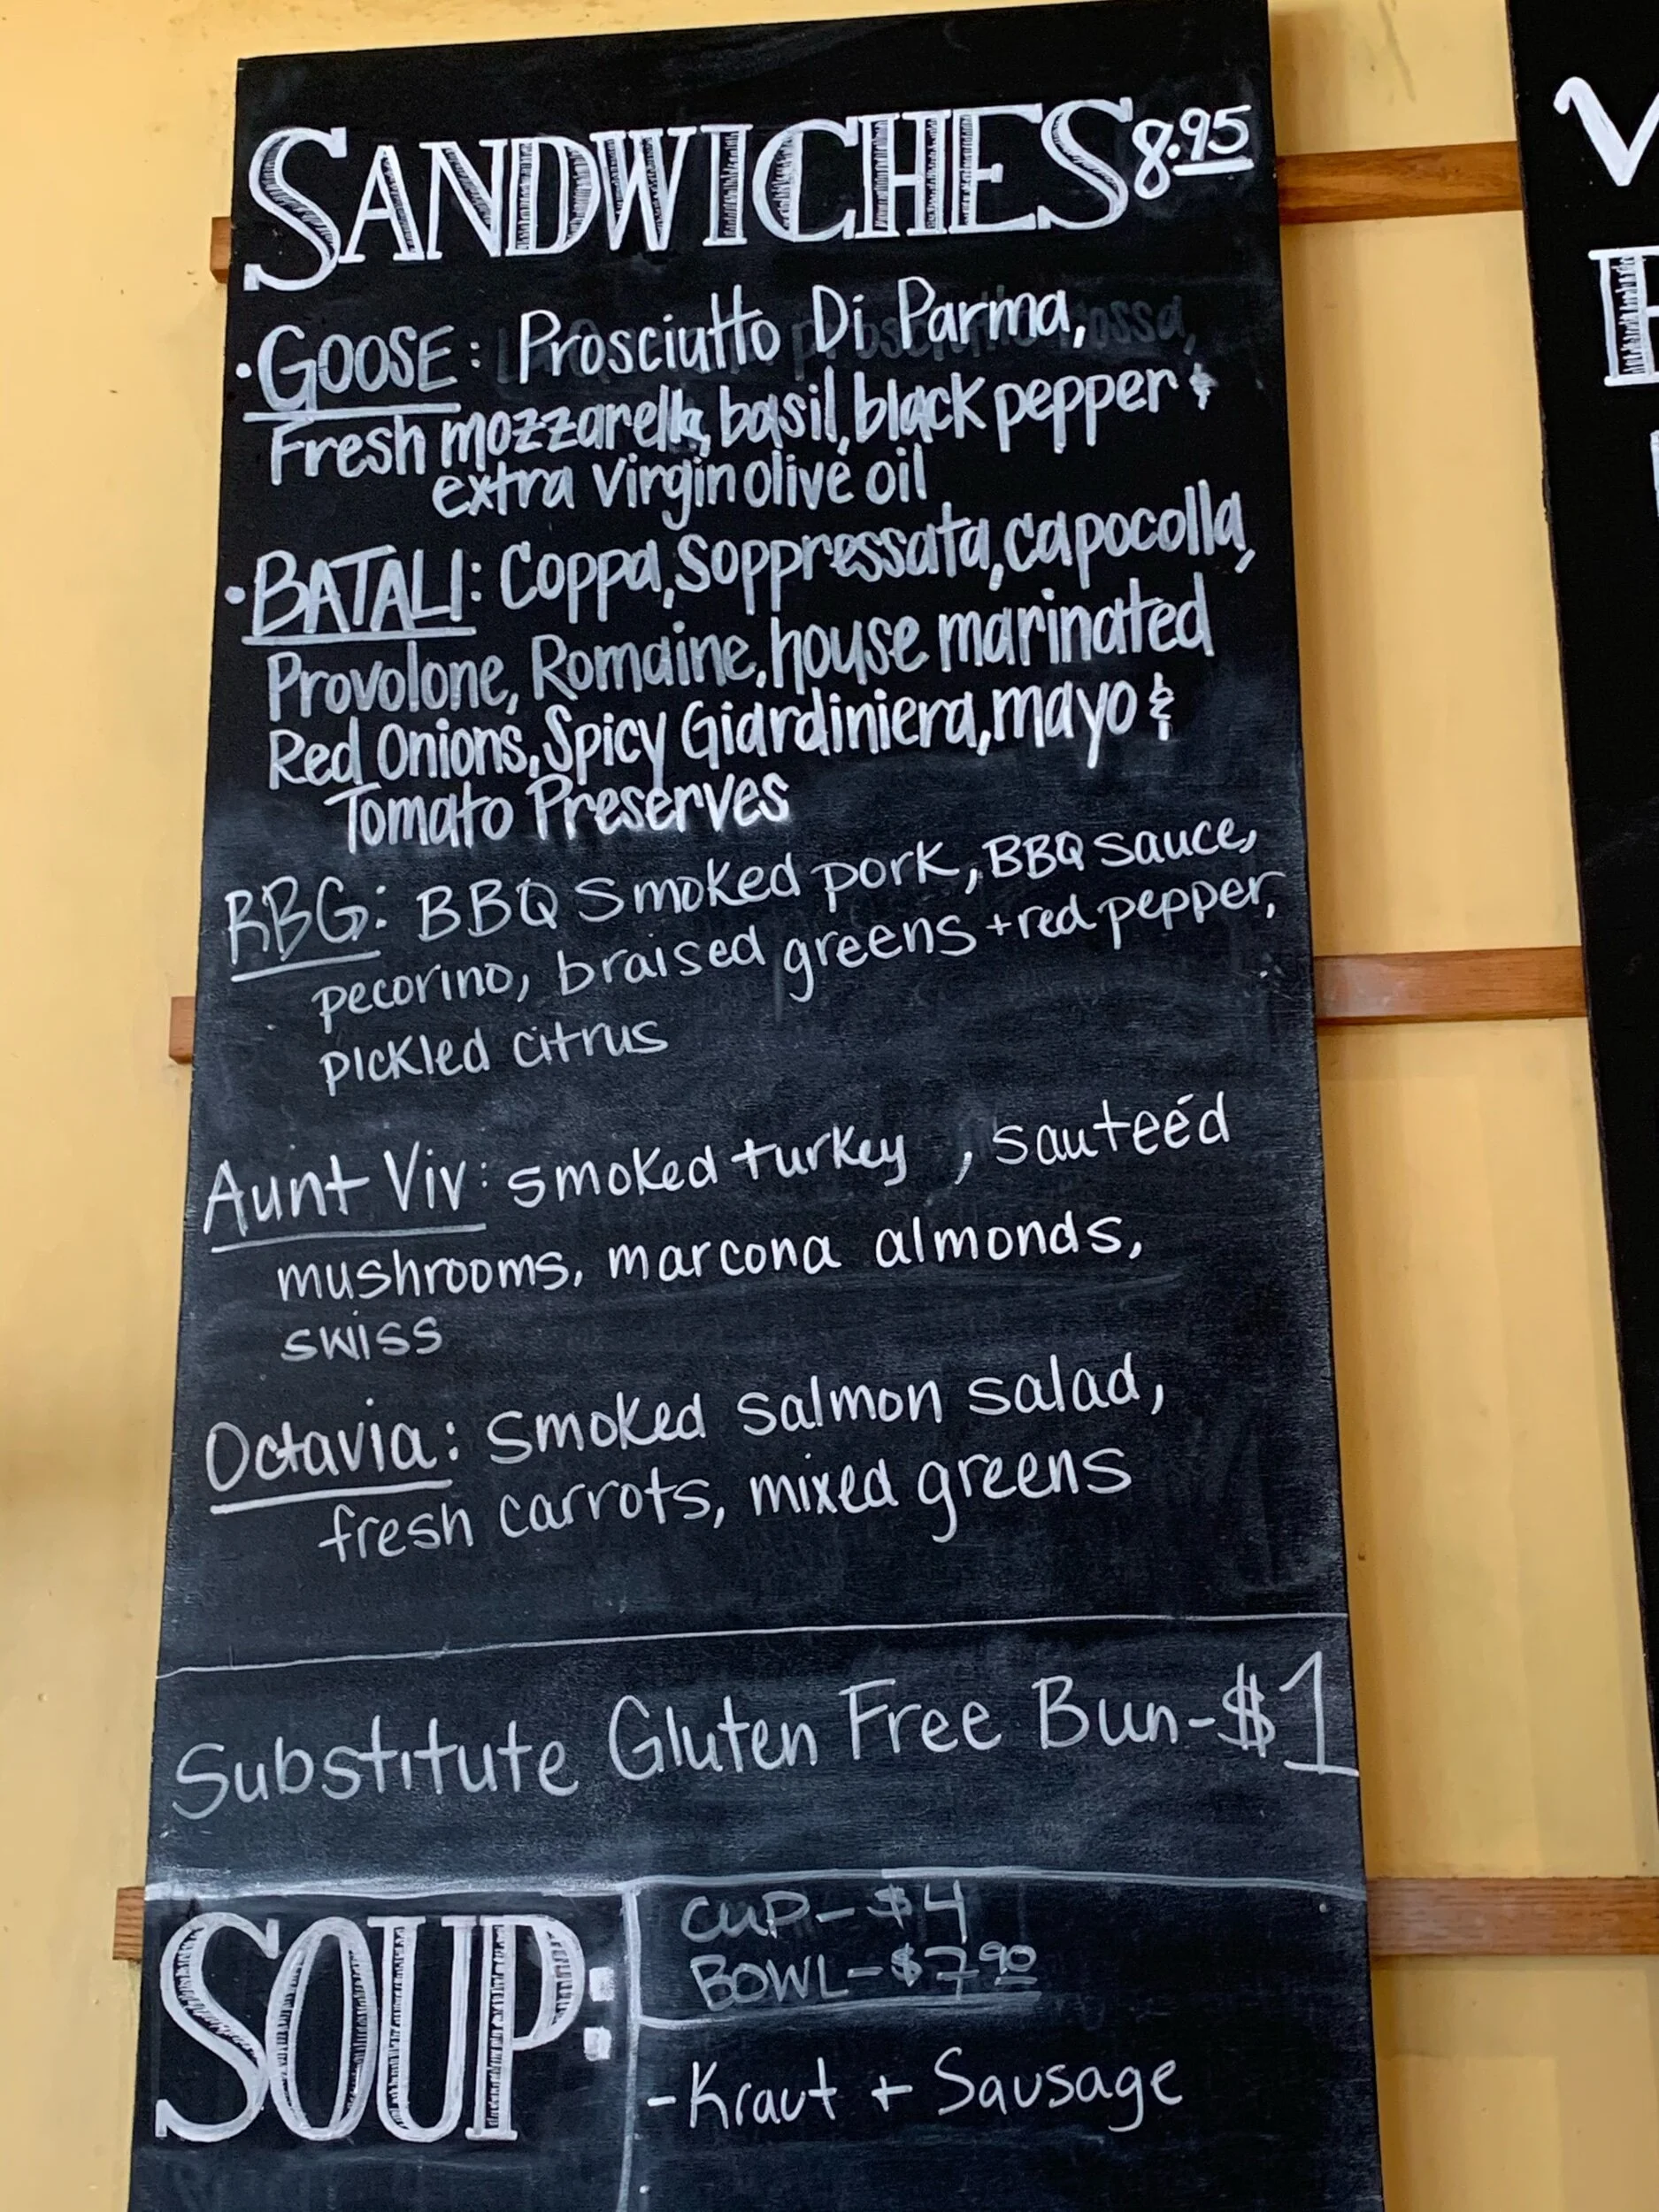 SANDWICHES 8.95
• GOOSE: Prosciutto Di Parma,
Fresh mozzarella, basil, black pepper &
extra virgin olive oil
• BATALI: Coppa, Soppressata, capocolla,
Provolone, Romaine, house marinated
Red Onions, Spicy Giardiniera, mayo &
Tomato Preserves
RBG: BBQ Smoked pork, BBQ sauce,
pecorino, braised greens + red pepper,
pickled citrus
Aunt Viv: smoked turkey , sauteéd
mushrooms, marcona almonds,
swiss
Octavia: smoked salmon salad,
fresh carrots, mixed greens
Substitute Gluten Free Bun-$1
SOUP:
CUP-$4
BOWL-$7.90
-Kraut + Sausage